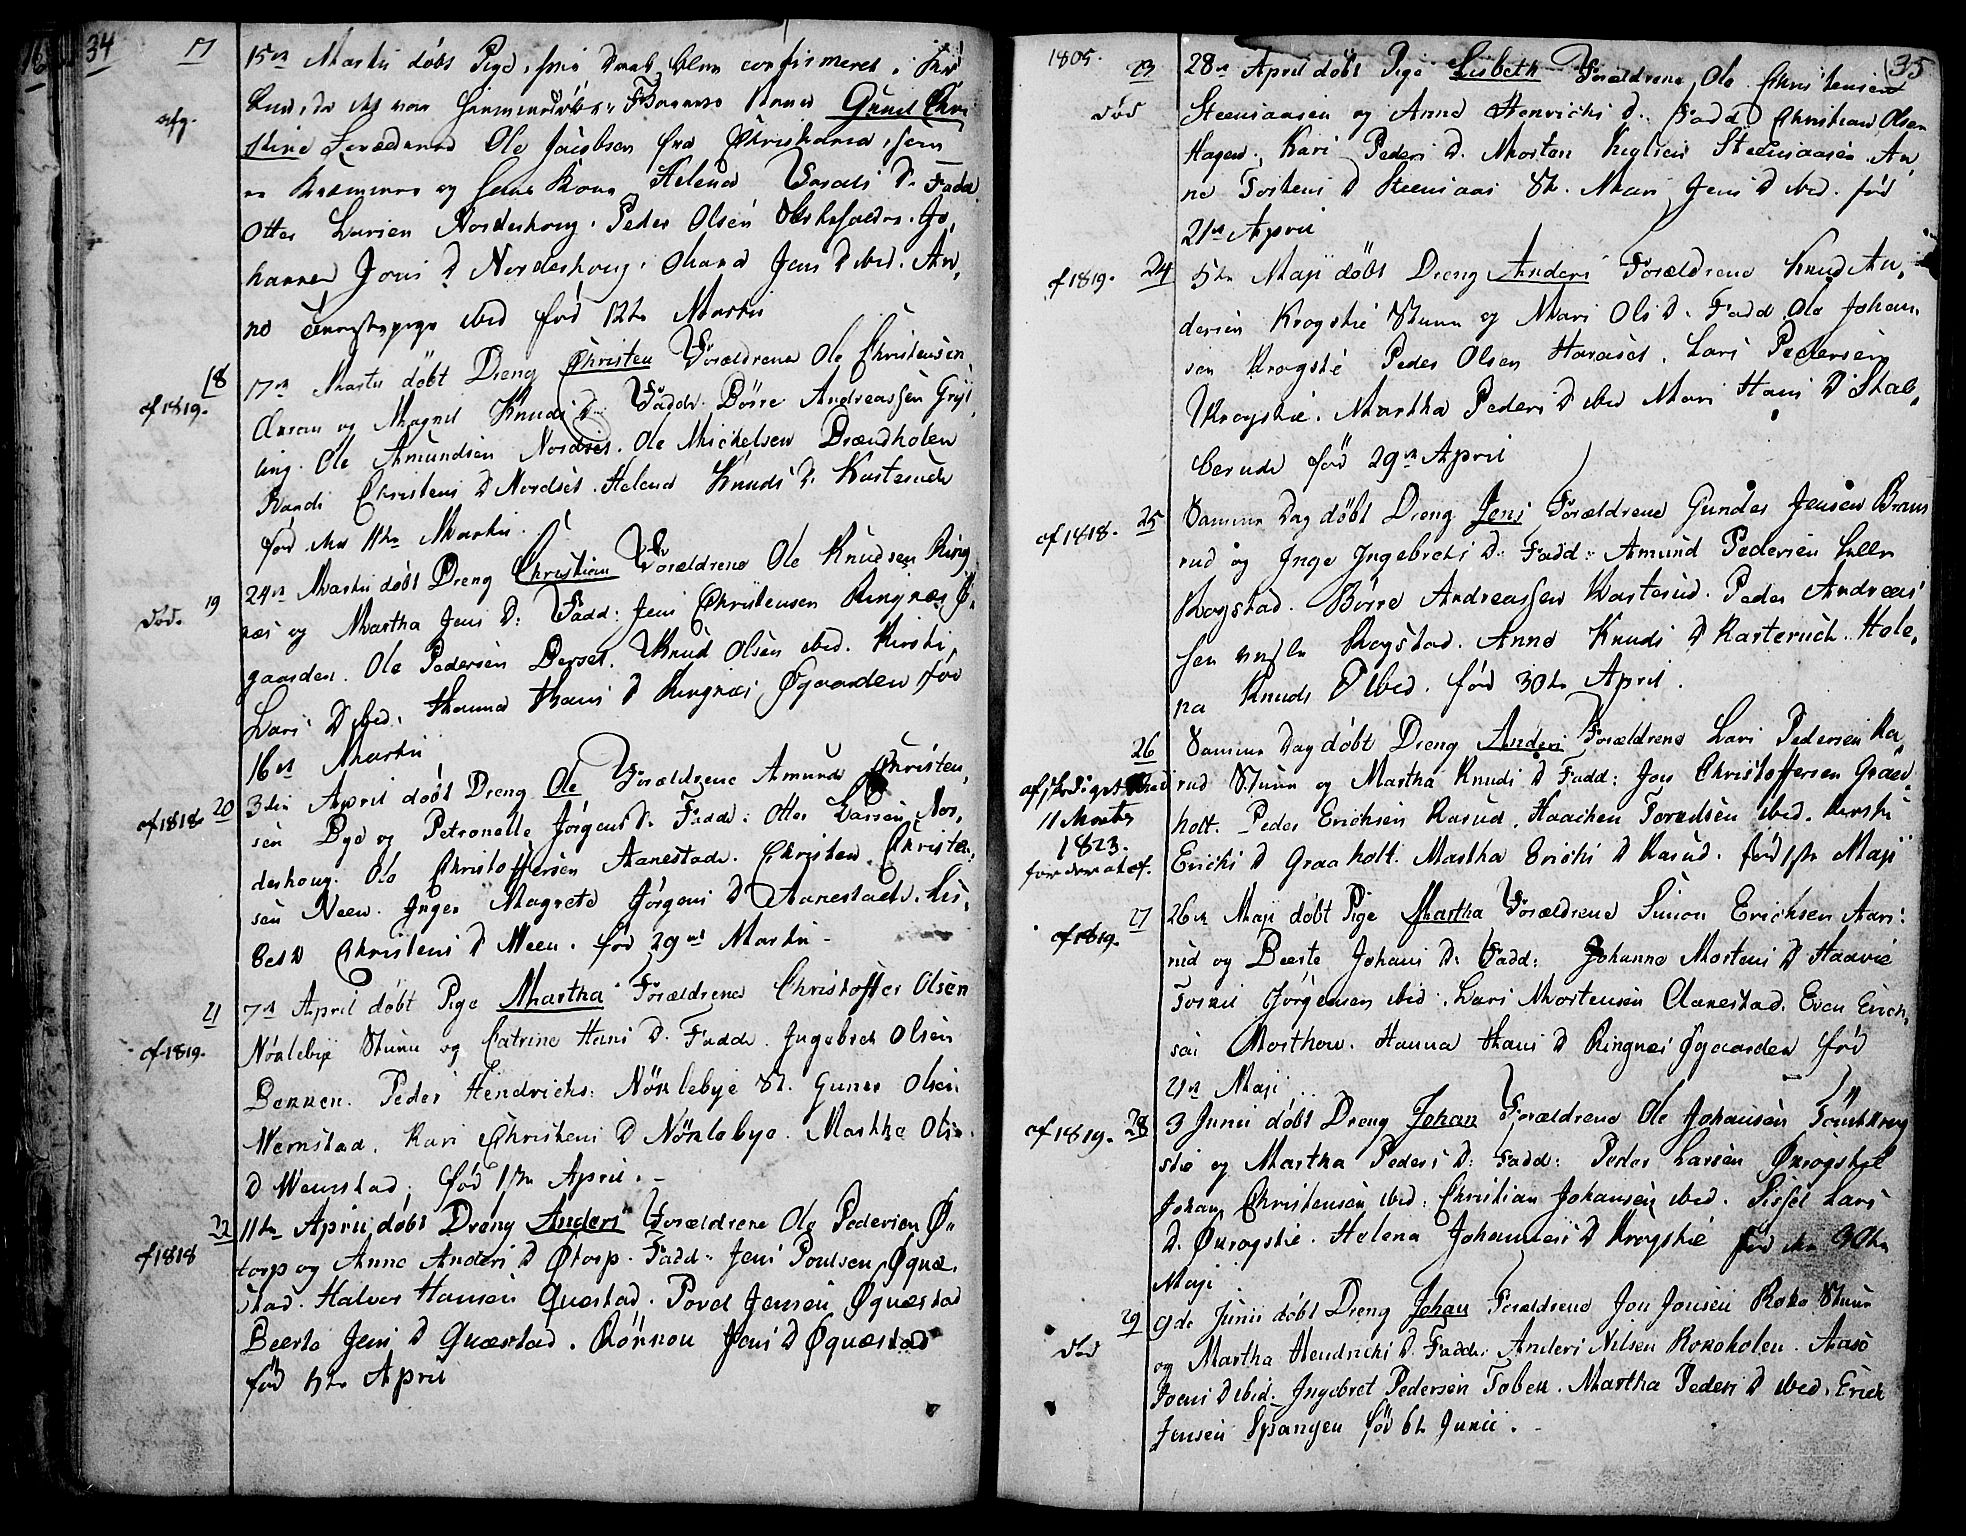 34
17
15de Martii døbt Pige, som dend blev confirmeret i Kir
afg.
Barnets Navn Gunil Chri
stine Forældrene Ole Jacobsen fra Christiania, som
er Kræmmer og hans Kone Helena Larsis D. Fadd
Otter Larsen Norderhoug. Peder Olsen Jo,
hanne Jens D Norderhoug. Maria Jens D ibid. An,
ne ibid fød 12te Martii
18
17de Martii døbt Dreng Christen Forældrene Ole Christensen
cf 1819.
og Magnil Knuds D. Fadd. Börre Andreassen Grÿt
ting. Ole Amundsen Nordset. Ole Michelsen Brændholen
Randi Christens D Nordset. Helena Knuds D. Kasterud
fød den 11te Martii.
19
24de Martii døbt Dreng Christian Forældrene Ole Knudsen Ring
død.
næs og Martha Jens D. Fadd: Jens Christensen Ringnæs Ø,
gaarden. Ole Pedersen Berset. Knud Olsen ibid. Kirsti
Lars D ibid. Hanna Hans D Ringnæs Øgaarden fød
16de Martii
20
3die April døbt Dreng Ole Forældrene Amund Christen,
cf 1818
sen Bye og Petronelle Jørgens D. Fadd: Otter Larsen Nor,
derhoug. Ole Christoffersen Aanestad. Christen Christen,
sen Neen. Inger Magrete Jörgens D Aanestad. Lis,
beth Christens D Neen. fød 29de Martii -
21
7de April døbt Pige Martha Forældrene Christoffer Olsen
cf 1819.
Nöklebÿe Stuen og Catrine Hans D. Fadd. Ingebret Olsen
Bennen. Peder Hendrichs: Nöklebye St. Guner Olsen
Wernstad. Kari Christens D Nöklebye. Martha Ols
D Wernstad. fød 1ste April. -
22
11te April døbt Dreng Anders Forældrene Ole Pedersen Ø,
cf 1818
torp og Anne Anders D Øtorp. Fadd: Jens Poulsen Øquæ,
stad. Halvor Hansen Quæstad. Povel Jensen Øquæstad
Beerte Jens D Quæstad. Rönnou Jens D Øquæstad
fød 5te April
1805.
35
23
28de April døbt Pige Lisbeth Forældrene Ole Christensen
død
Steensaasen og Anne Henrichs D. Fadd Christian Olsen
Hagen, Kari Peders D. Morten Steensaasen. An
ne Torstens D Steensaas St. Mari Jens D ibid. fød
21de April
24
5te Maji døbt Dreng Anders Forældrene Knud An,
cf 1819.
dersen Krogstie Stuen og Mari Ols D. Fadd Ole Johan,
sen Krogstie Peder Olsen Haraset. Lars Pedersen
Krogstie. Martha Peders D ibid Mari Hans D Skal,
berud fød 29de April
25
Samme Dag døbt Dreng Jens Forældrene Gunder Jensen Bram
cf 1818.
rud og Inge Ingebrets D. Fadd: Amund Pedersen Lille
Rogstad. Börre Andreassen Kasterud. Peder Andreas
sen Rogstad. Anne Knuds D Kasterud. Hele,
na Knuds D ibid. fød 30te April.
26
Samme Dag døbt Dreng Anders Forældrene Lars Pedersen Ra,
rud Stuen og Martha Knuds D Fadd: Jon Christoffersen Graa
11 Martii
holt. Peder Erichsen Rasud. Haachen Torudsen ibid. Kirsti
1823.
Erichs D Graaholt. Martha Erichs D Rasud. fød 1ste Maji
27
26de Maji døbt Pige Martha Forældrene Simon Erichsen Aas:
cf 1819.
rud og Beerte Johans D. Fadd: Johanne Mortens D Haavie
Jörgensen ibid. Lars Mortensen Aanestad. Even Erich,
sen Morthow. Hanna Hans D Ringnæs Øgaarden fød
21de Maji
28
3 Junii døbt Dreng Johan Forældrene Ole Johansen Krog
cf 1819.
stie og Martha Peders D. Fadd: Peder Larsen Økrogstie
Johan Christensen ibid. Christian Johansen ibid. Sissel Lars
D. Økrogstie. Helena Johannes D Krogstie fød den 30te
Maji
29
9de Junii døbt Dreng Johan Forældrene Jon Jonsen Roko Stuen
død
og Martha Hendrichs D. Fadd: Anders Nilsen Rokoholen. Aase
Joens D ibid. Ingebret Pedersen Toben. Martha Peders D ibid. Erich
Jensen Spangen fød 6te Junii. -